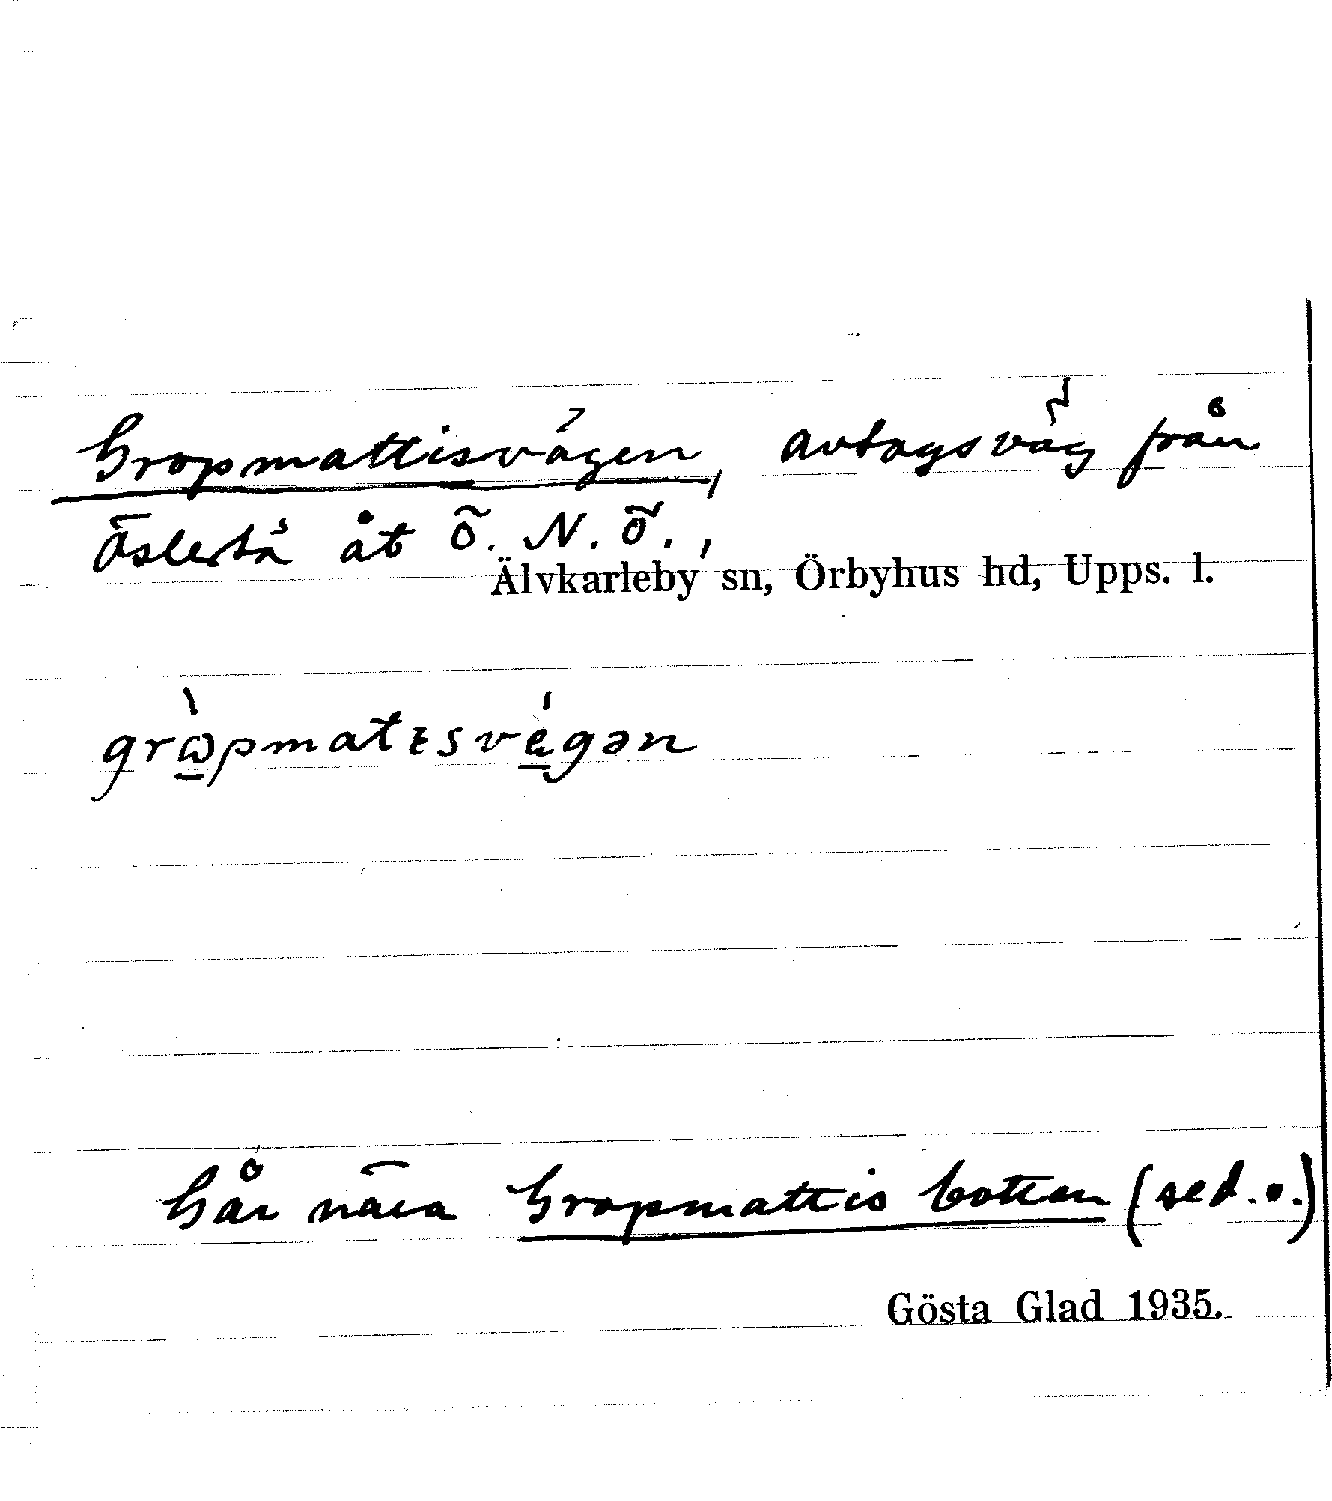 Gropmattisvägen, avtagsväg från
Österbå åt Ö. N. Ö.,
Älvkarleby sn, Örbyhus hd, Upps. l.
grὼ̲pmatɪsvé̲gən
Går nära Gropmattis botten (se d. o.)
Gösta Glad 1935.